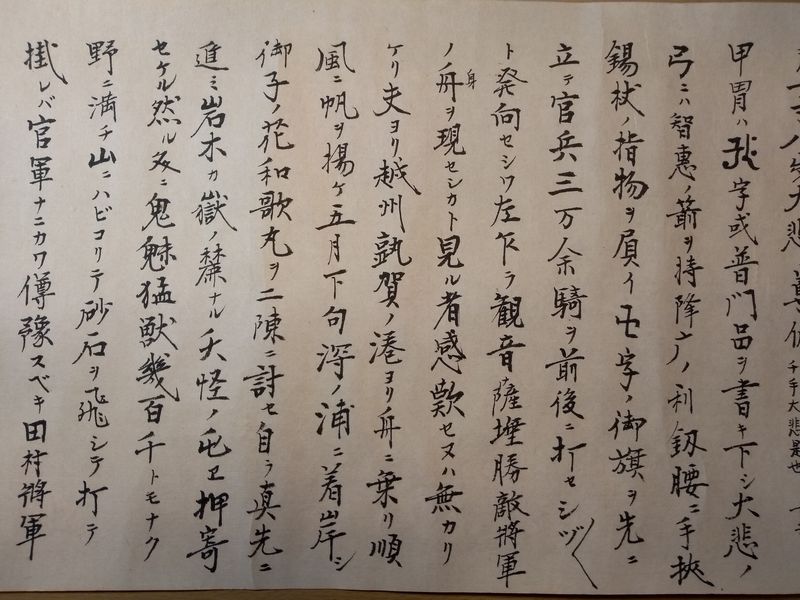 大悲 千手大悲是也
甲冑ハ 字或普門品ヲ書キ下シ大悲ノ
弓ニハ智惠ノ箭ヲ持降广ノ利釼腰ニ手挾
錫杖ノ指物ヲ屓イ卍字ノ御旗ヲ先ニ
立テ官兵三万余騎ヲ前後ニ打セシヅ〱
ト発向セシワ左乍ラ観音薩埵勝敵将軍
ノ身ヲ現セシカト見ル者感歎セヌハ無カリ
ケリ夫ヨリ越州敦賀ノ港ヨリ舟ニ乗リ順
風ニ帆ヲ揚ケ五月下旬深ノ浦ニ着岸シ
御子ノ花和歌丸ヲ二陳ニ討セ自ラ真先ニ
進ミ岩木カ嶽ノ麓ナル夭怪ノ屯エ押寄
セケル然ル処ニ鬼魅猛獣幾百千トモナク
野ニ満チ山ニハビコリテ砂石ヲ飛シテ打テ
掛レバ官軍ナニカワ僔豫スベキ田村将軍